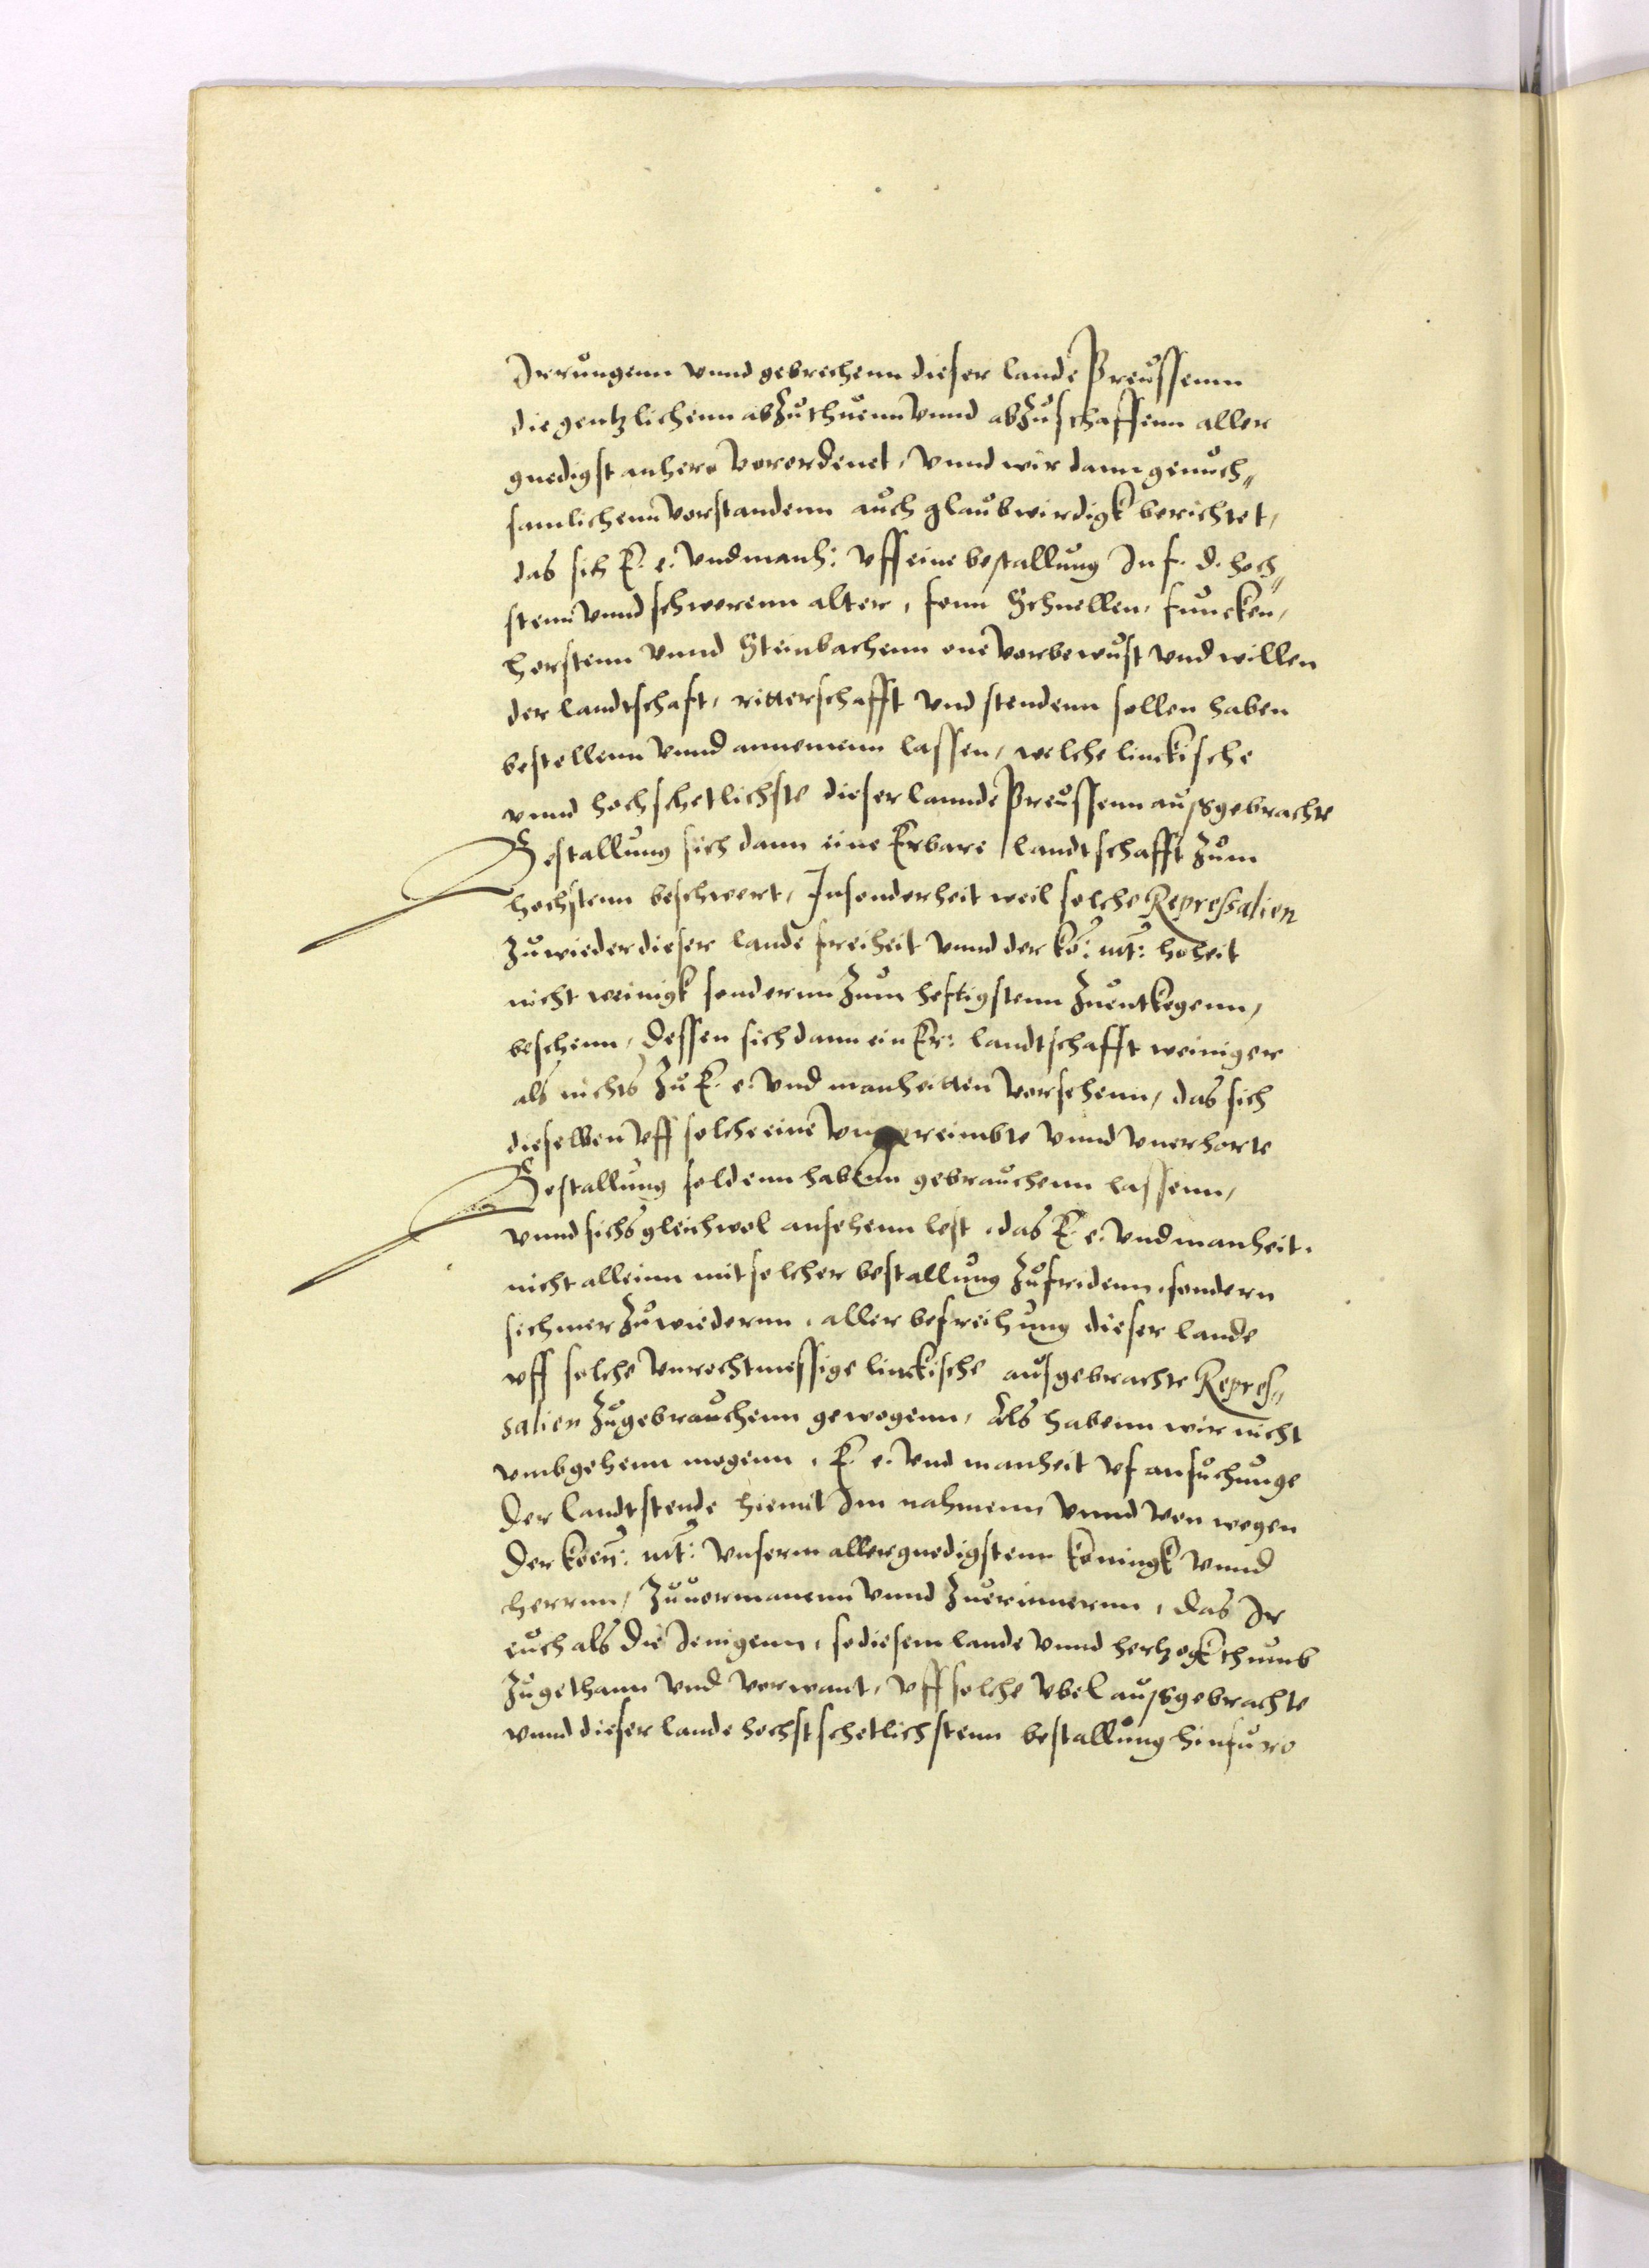 Irrungenn vnnd gebrechenn dieser lande Preussenn
die gentzlichenn abzuthuenn vnnd abzuschaffenn aller
gnedigst anhero verordenet, vnnd wir dann genuch„
samlichenn verstandenn auch glaubwirdigk berichtet,
das sich E. e. vnd manh: vff eine bestallung In f. d. hoch„
stenn vnnd schwerenn alter, fonn Schnellen, funcken,
horstenn vnnd Steinbachenn one vorbewust vnd willen
der landtschaft, ritterschafft vnd stendenn sollen haben
bestellenn vnnd annemenn lassen, welche linckische
vnnd hochschetlichste dieser lannde Preussenn außgebrachte
Bestallung sich dann eine Erbare landtschafft zum
hochstenn beschwert, Insonderheit weil solche Repressalien
zuwieder dieser lande freiheit vnnd der ko: mt: hoheit
nicht weinigk sondernn zum heftigstenn zuentkegenn,
beschenn, dessen sich dann ein Er: landtschafft weiniger
als nichts zu E. e. vnd manheitten versehenn, das sich
dieselben vff solche eine vngereimbte vnnd vnerhorte
Bestallung soldenn habenn gebrauchenn lassenn,
vnnd sichs gleichwol ansehenn lest, das E. e. vnd manheit.
nicht alleinn mit solcher bestallung zufridenn, sondern
sich mer zuwiedernn, aller befreihung dieser lande
vff solche vnrechtmessige linckische ausgebrachte Repres„
salien zugebrauchenn gewogenn, Als habenn wir nicht
vmbgehenn mogenn, E. e. vnd manheit vf ansuchunge
der landtstende hiemit Im nahmenn vnnd von wegen
der koen: mt: vnserm allergnedigstenn koningk vnnd
herrnn, zuuermanenn vnnd zuerinnernn, das Ir
euch als die Jenigenn, so diesem lande vnnd hertzogkthumb
zugethann vnd verwant, vff solche vbel außgebrachte
vnnd dieser lande hochst schetlichstenn bestallung hinfuro